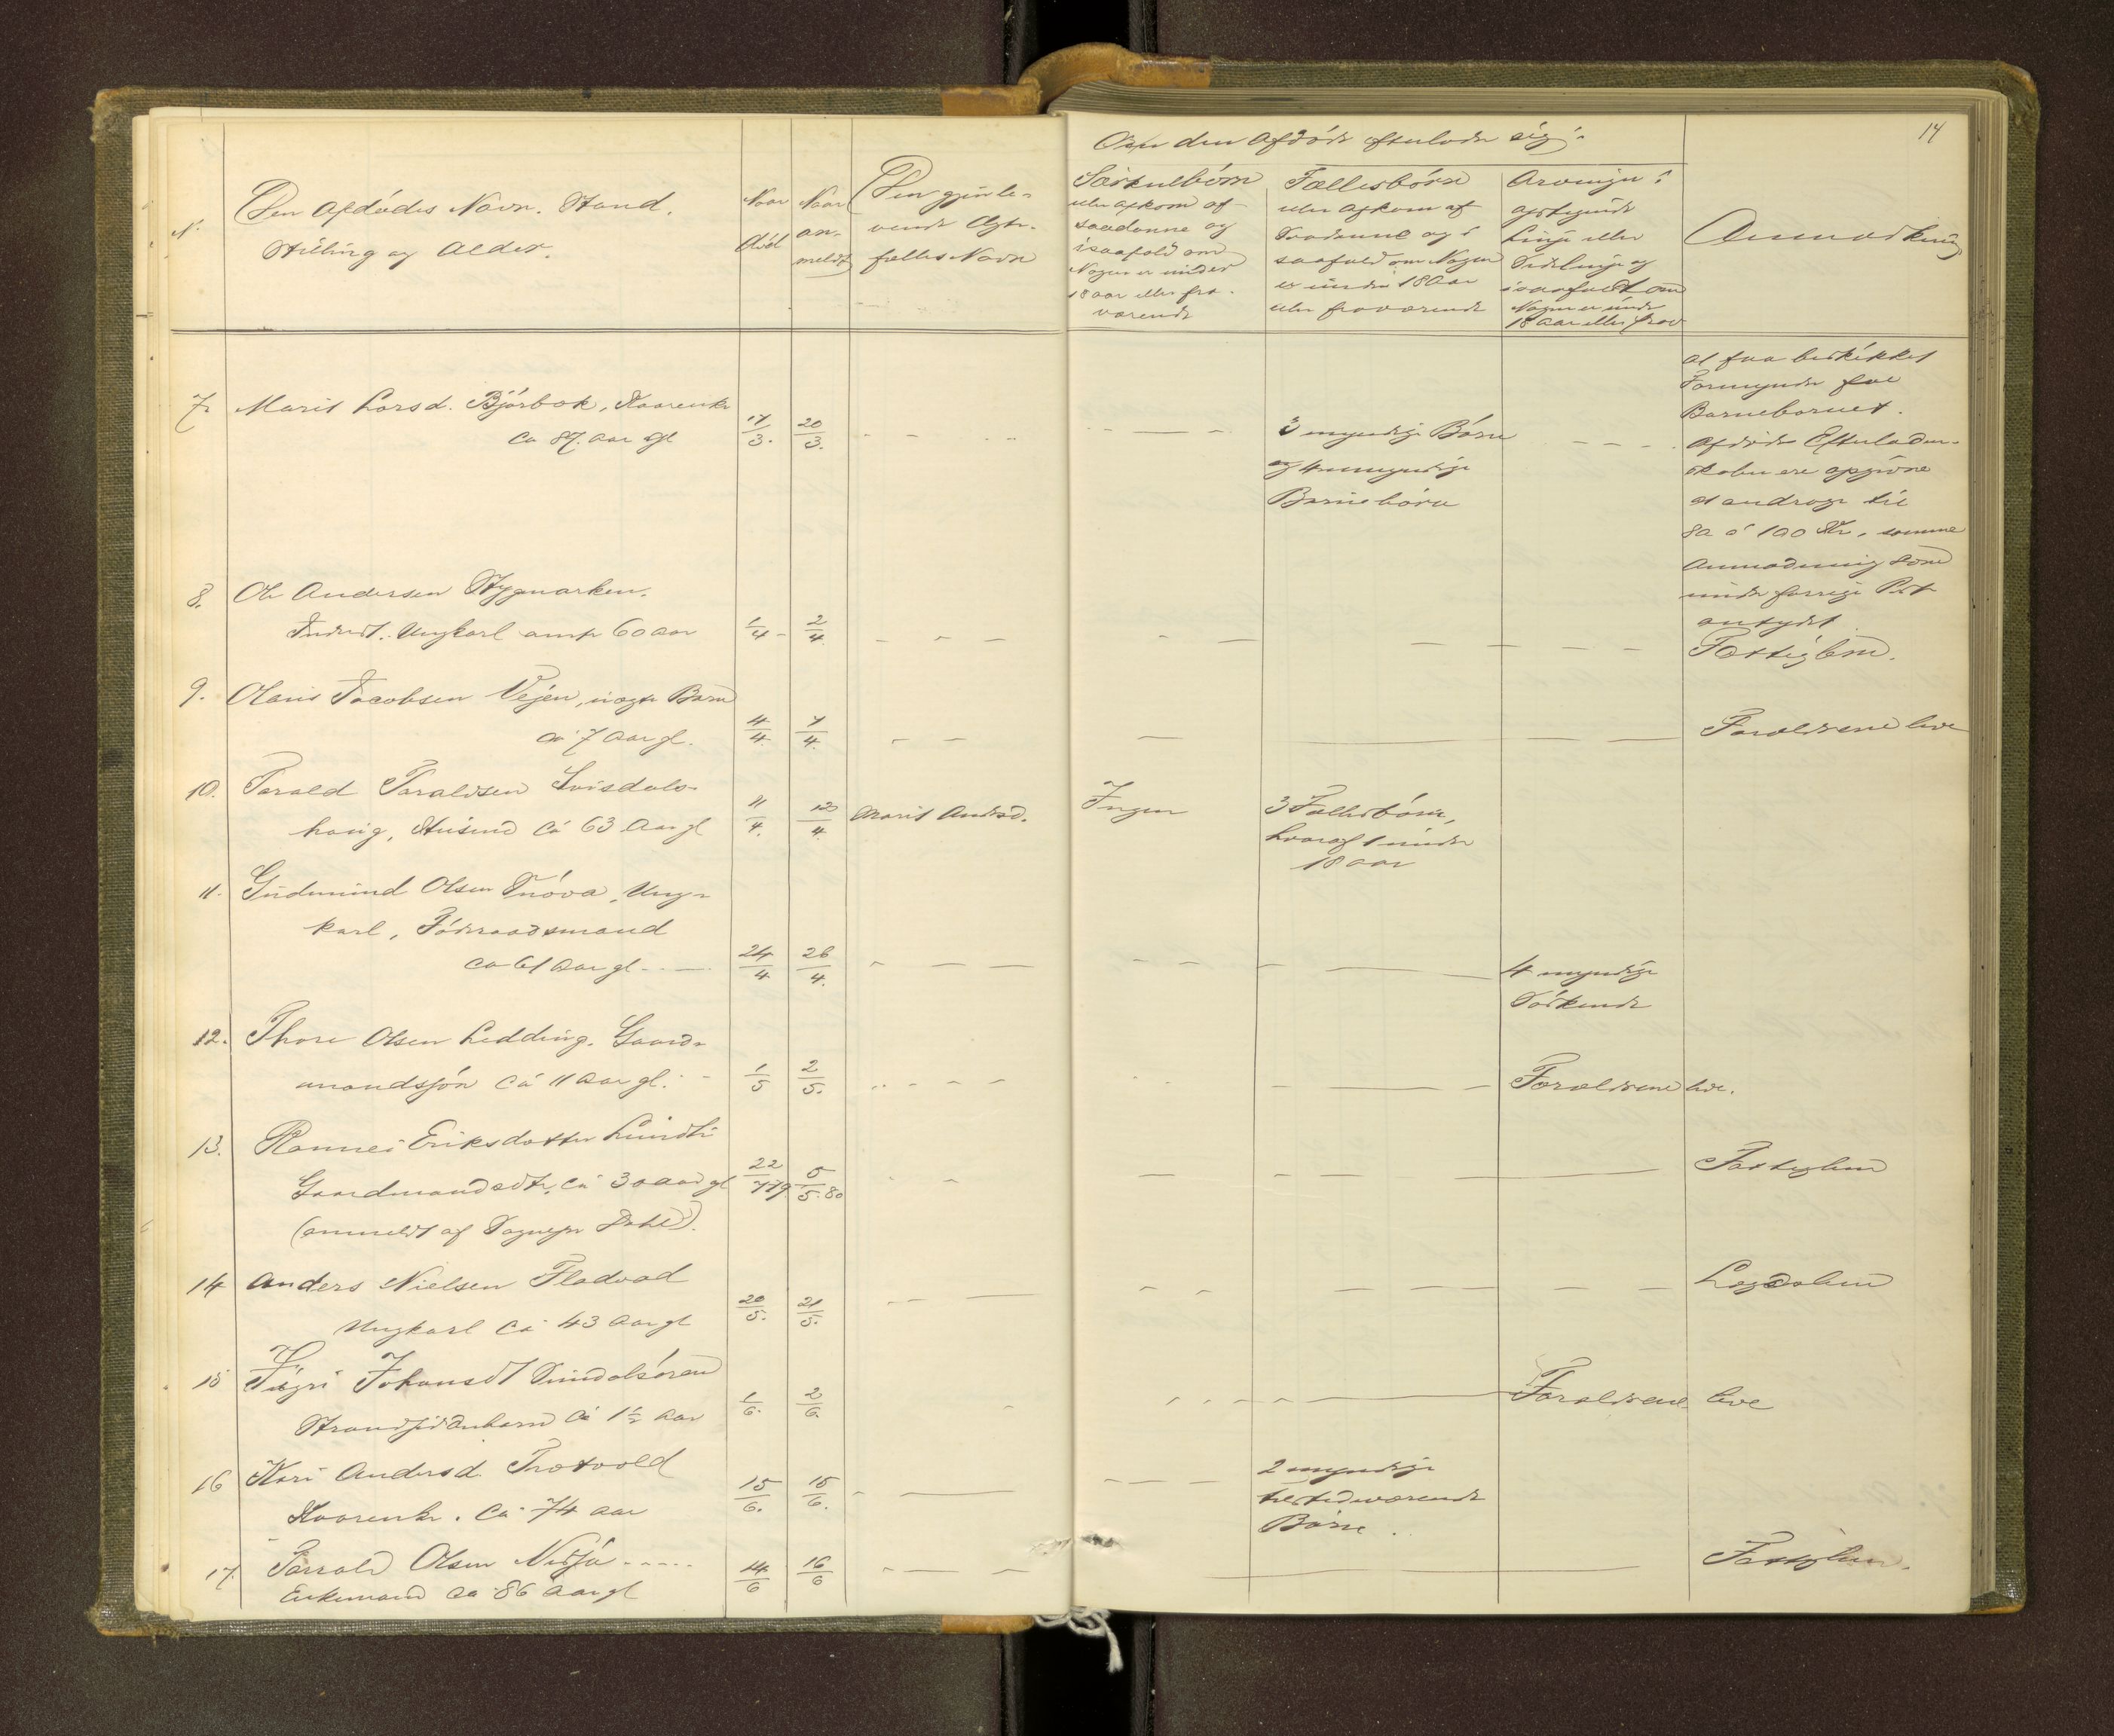 14
Om den Afdøde efterlader sig:
N.
Den Afdødes Navn. Stand.
Stilling og Alder.
Naar
død
Naar
an-
meldt
Den gjenle-
vende Ægte-
fælles Navn
Særkulbørn
eller Afkom af
saadanne og
isaafald om
Nogen er under
18 aar eller fra-
værende
Fællesbørn
eller Afkom af
Saadanne og i
saafald om Nogen
er under 18 Aar
eller fraværende
Arvinger i
opstigende
Linje eller
Sidelinje og
isaafald om
Nogen er under
18 Aar eller frav
Anmærkning
at faa beskikket
Formynder for
Barnebarnet.
7. Marit Larsd. Bjørbæk, Kaarenke
ca 87 aar gl
17/3. 20/3.
3 myndige Børn
og 4 umyndige
Børnebørn
Afdødes Efterladen-
skaber ere opgivne
at andrage til
80 à 100 Kr, samme
Anmodning som
under forrige Post
antydet
8. Ole Andersen Stygmarken.
Inderst. Ungkarl omtr 60 aar
1/4 - 2/4
Fattiglem.
9. Olaus Jacobsen Vejen, uægte Barn
ca 7 Aar gl.
4/4. 7/4.
Forældrene leve
10. Tarald Taraldsen Svisdals-
haug, Husmd ca 63 Aar gl
11/4. 12/4. Marit Andersd.
Ingen
3 Fællesbørn,
hvoraf 1 under
18 aar
11. Gudmund Olsen Snøva, Ung-
karl, Føderaadsmand
ca 61 Aar gl
24/4 26/4.
4 myndige
Sødskende
12. Thore Olsen Ledding. Gaard-
mandssøn ca 11 Aar gl.
1/5 2/5.
Forældrene leve.
13. Rannei Eriksdatter Lundli
Gaardmandsdtr, ca 30 aar gl
22/7 79. 5/5. 80
(anmeldt af Sognepr Dahl).
Fattiglem
14 Anders Nielsen Fladvad
Ungkarl ca 43 Aar gl
20/5. 21/5.
Lægdslem
15 Sigri Johansdt Sundalsøren
Strandsidderbarn ca 1½ Aar
1/6. 2/6.
Forældrene leve
16 Kari Andersd. Trætvold
Kaarenke. ca 74 aar
15/6. 15/6.
2 myndige
tilstedeværende
Børn.
17. Tarald Olsen Nisja
Enkemand ca 86 Aar gl
14/6 16/6
Fattiglem.